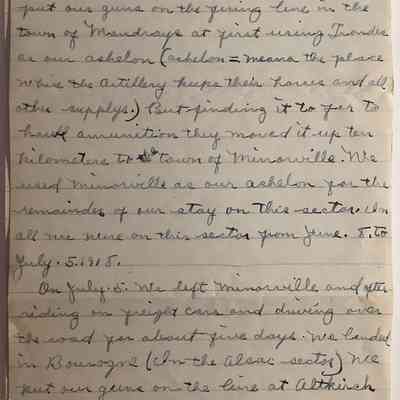 put our guns on the firing line in the
town of Mandrays at first using Trondes
as our ashelon (ashelon = means the place
where the Artillery keeps their horses and all
other supplys.) But finding it to far to
haul amunition they moved it up ten
kilometers to town of Minorville. We
used Minorville as our ashelon for the
remainder of our stay on this sector. In
all we were on this sector from June. 8. to
July. 5. 1918.
On July. 5. We left Minorville and after
riding on freight cars and driving over
the road for about five days. We landed
in Bourogne (In the Alsac sector) We
put our guns on the line at Altkirch